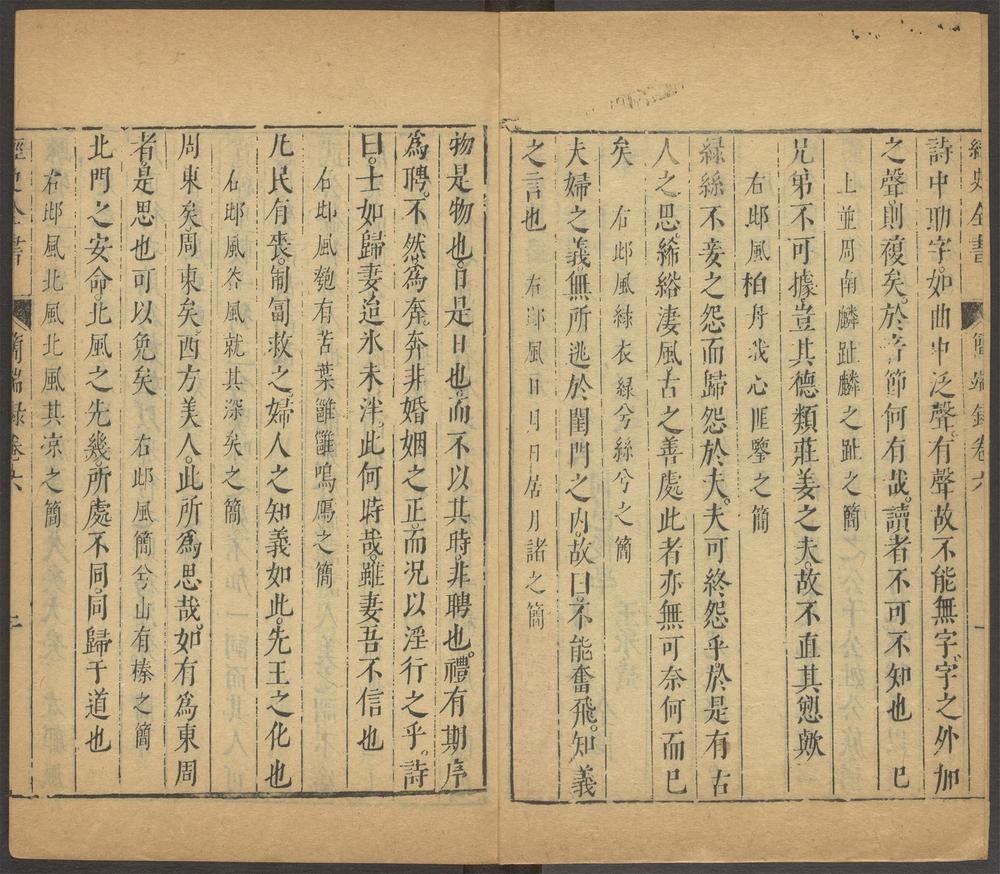 經史全書
簡端錄卷六
詩中助字如曲中泛聲有聲故不能無字字之外加
之聲則複矣於音節何有哉讀者不可不知也 已
上並周南麟趾麟之趾之簡
兄弟不可據豈其德類莊姜之夫故不直其愬歟
右邶風柏舟我心匪鑒之簡
綠絲不妾之怨而歸怨於夫夫可終怨乎於是有古
人之思絺綌淒風古之善處此者亦無可奈何而已
矣 右邶風綠衣綠兮絲兮之簡
夫婦之義無所逃於閨門之内故曰不能奮飛知義
之言也 右邶風日月日居月諸之簡
物是物也日是日也而不以其時非聘也禮有期序
為聘不然為奔奔非婚姻之正而況以淫行之乎詩
曰士如歸妻迨氷未泮此何時哉雖妻吾不信也
右邶風匏有苦葉雝雝鳴鴈之簡
凡民有喪匍匐救之婦人之知義如此先王之化也
右邶風谷風就其深矣之簡
周東矣周東矣西方美人此所為思哉如有為東周
者是思也可以免矣 右邶風簡兮山有榛之簡
北門之安命北風之先幾所處不同同歸于道也
右邶風北風北風其凉之簡
經史全書
簡端錄卷六
二